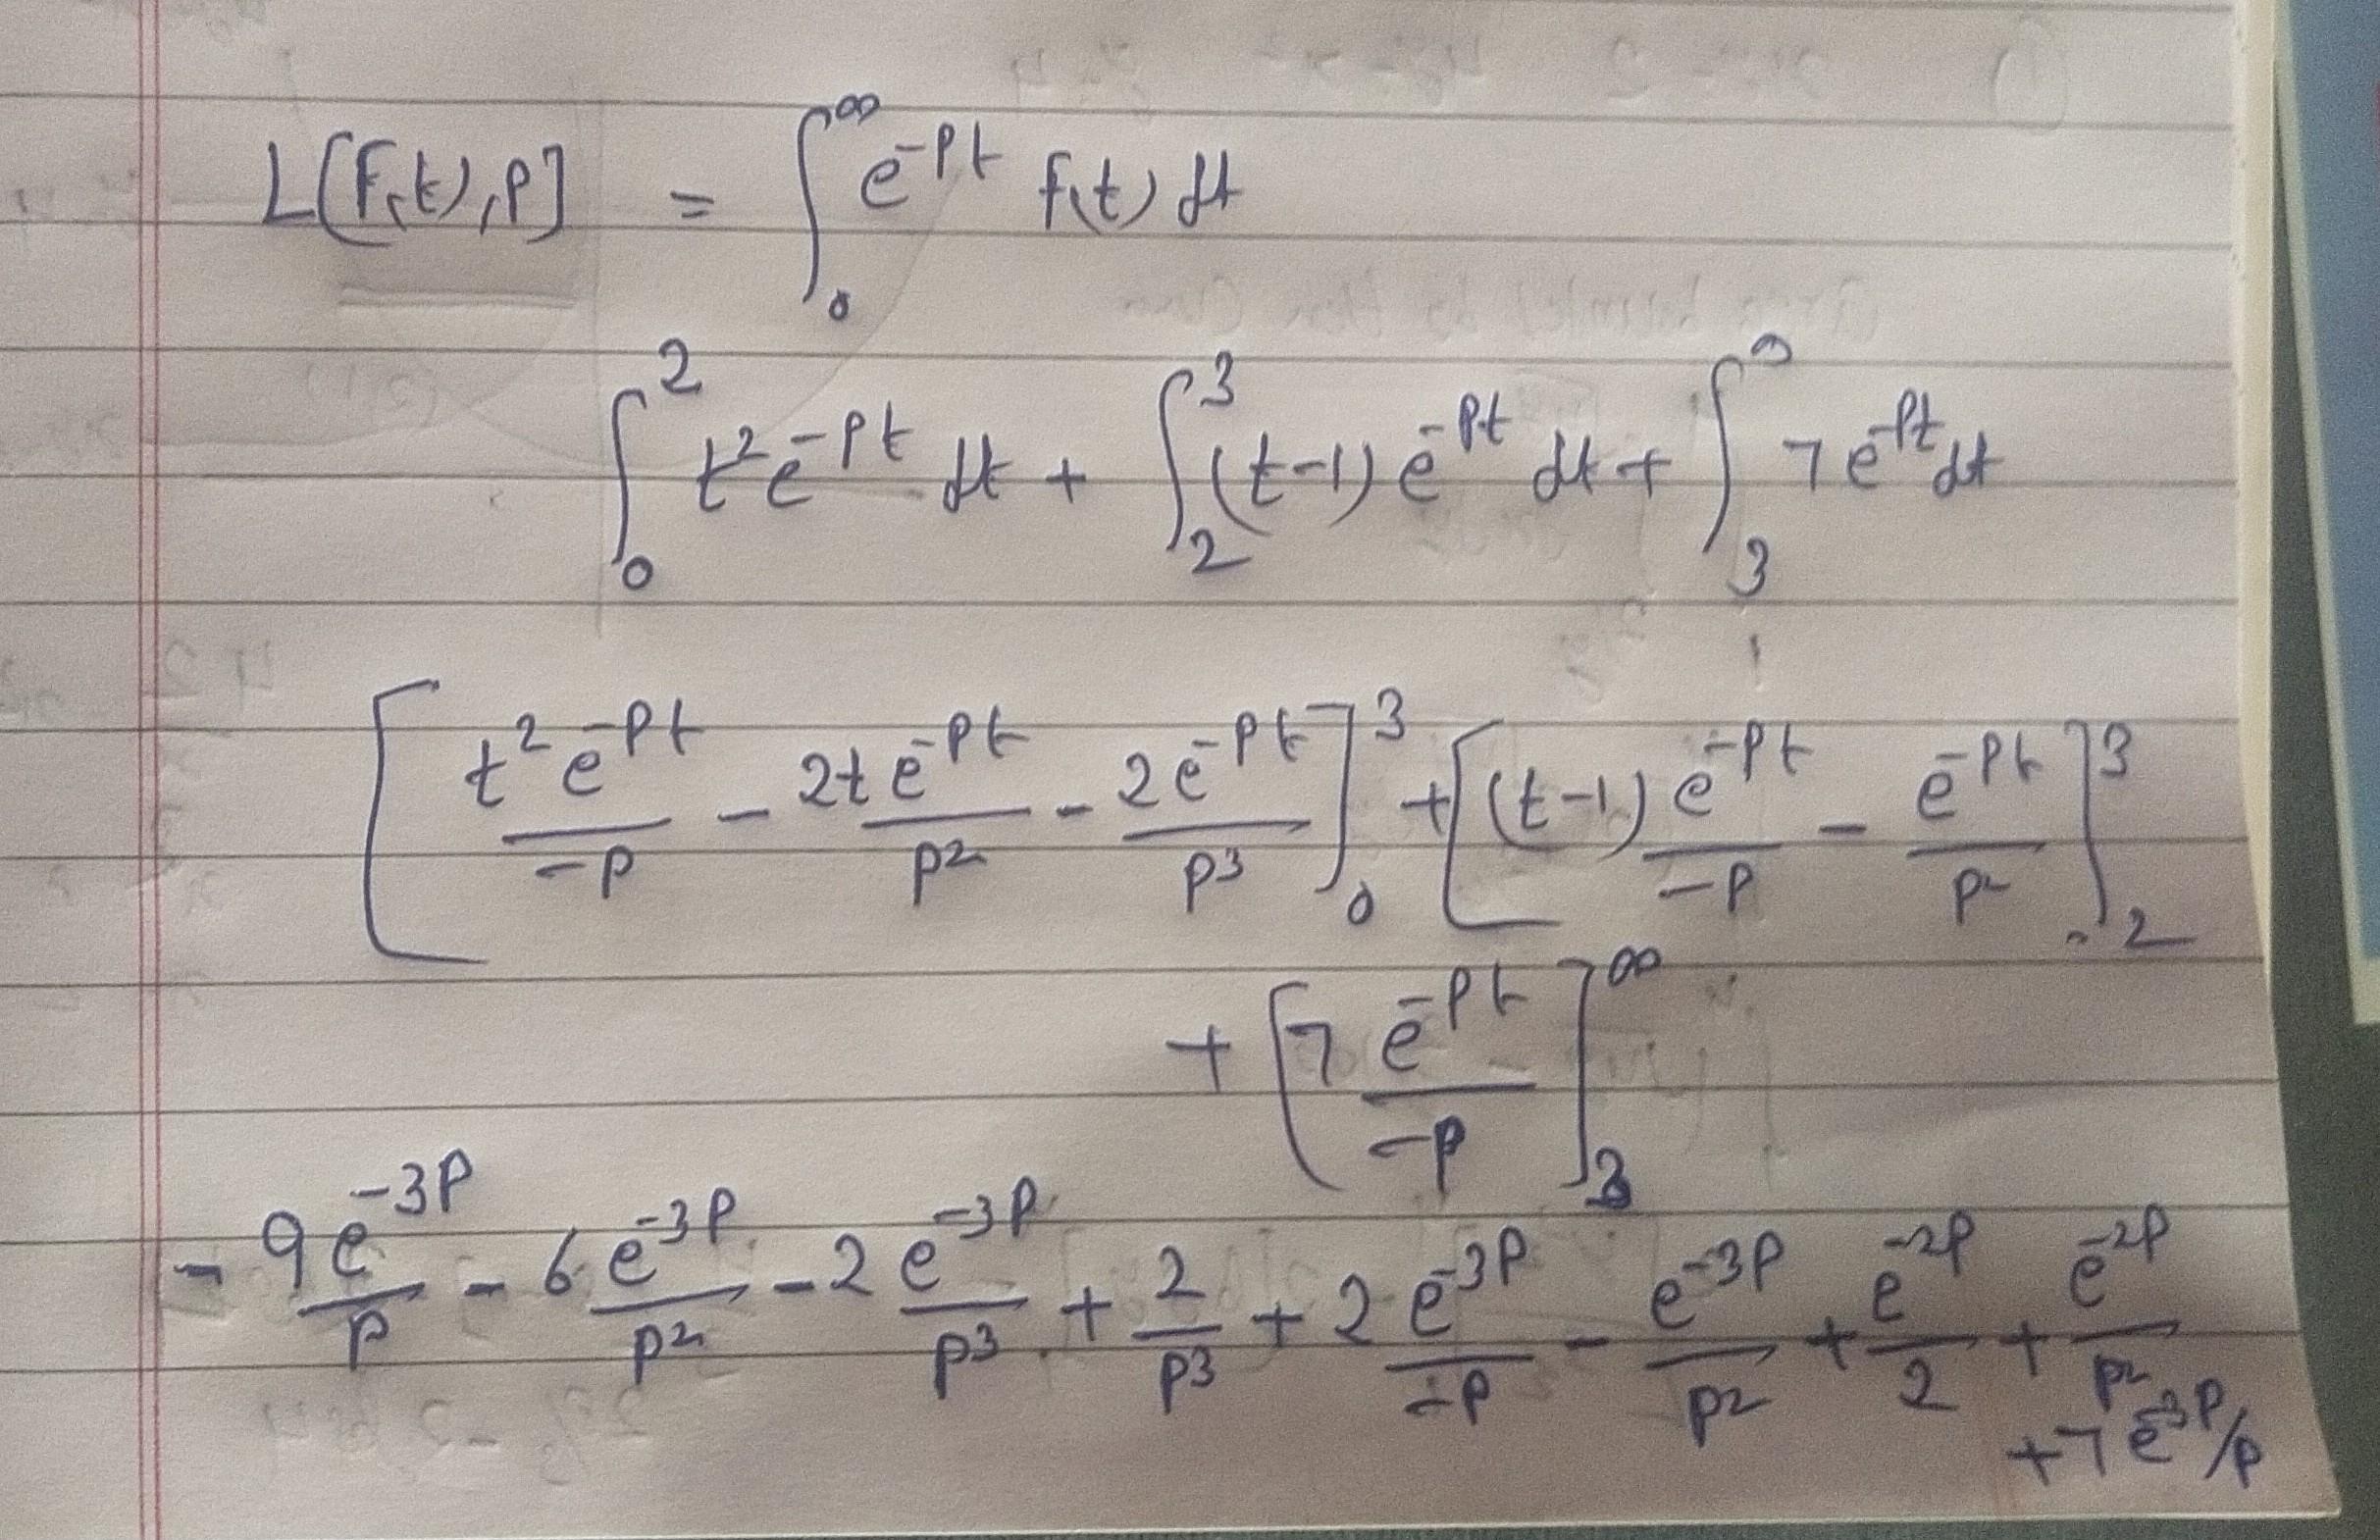 L[F(t),P] = ∫₀^∞ e^{-Pt} F(t) dt
∫₀² t² e^{-Pt} dt + ∫₂³ (t-1) e^{-Pt} dt + ∫₃^∞ 7 e^{-Pt} dt
[t² e^{-Pt}/-P - 2t e^{-Pt}/P² - 2 e^{-Pt}/P³]₀³ + [(t-1) e^{-Pt}/-P - e^{-Pt}/P²]₂³
+ [7 e^{-Pt}/-P]₃^∞
- 9 e^{-3P}/P - 6 e^{-3P}/P² - 2 e^{-3P}/P³ + 2/P³ + 2 e^{-3P}/-P - e^{-3P}/P² + e^{-2P}/2 + e^{-2P}/P²
+ 7 e^{-3P}/P